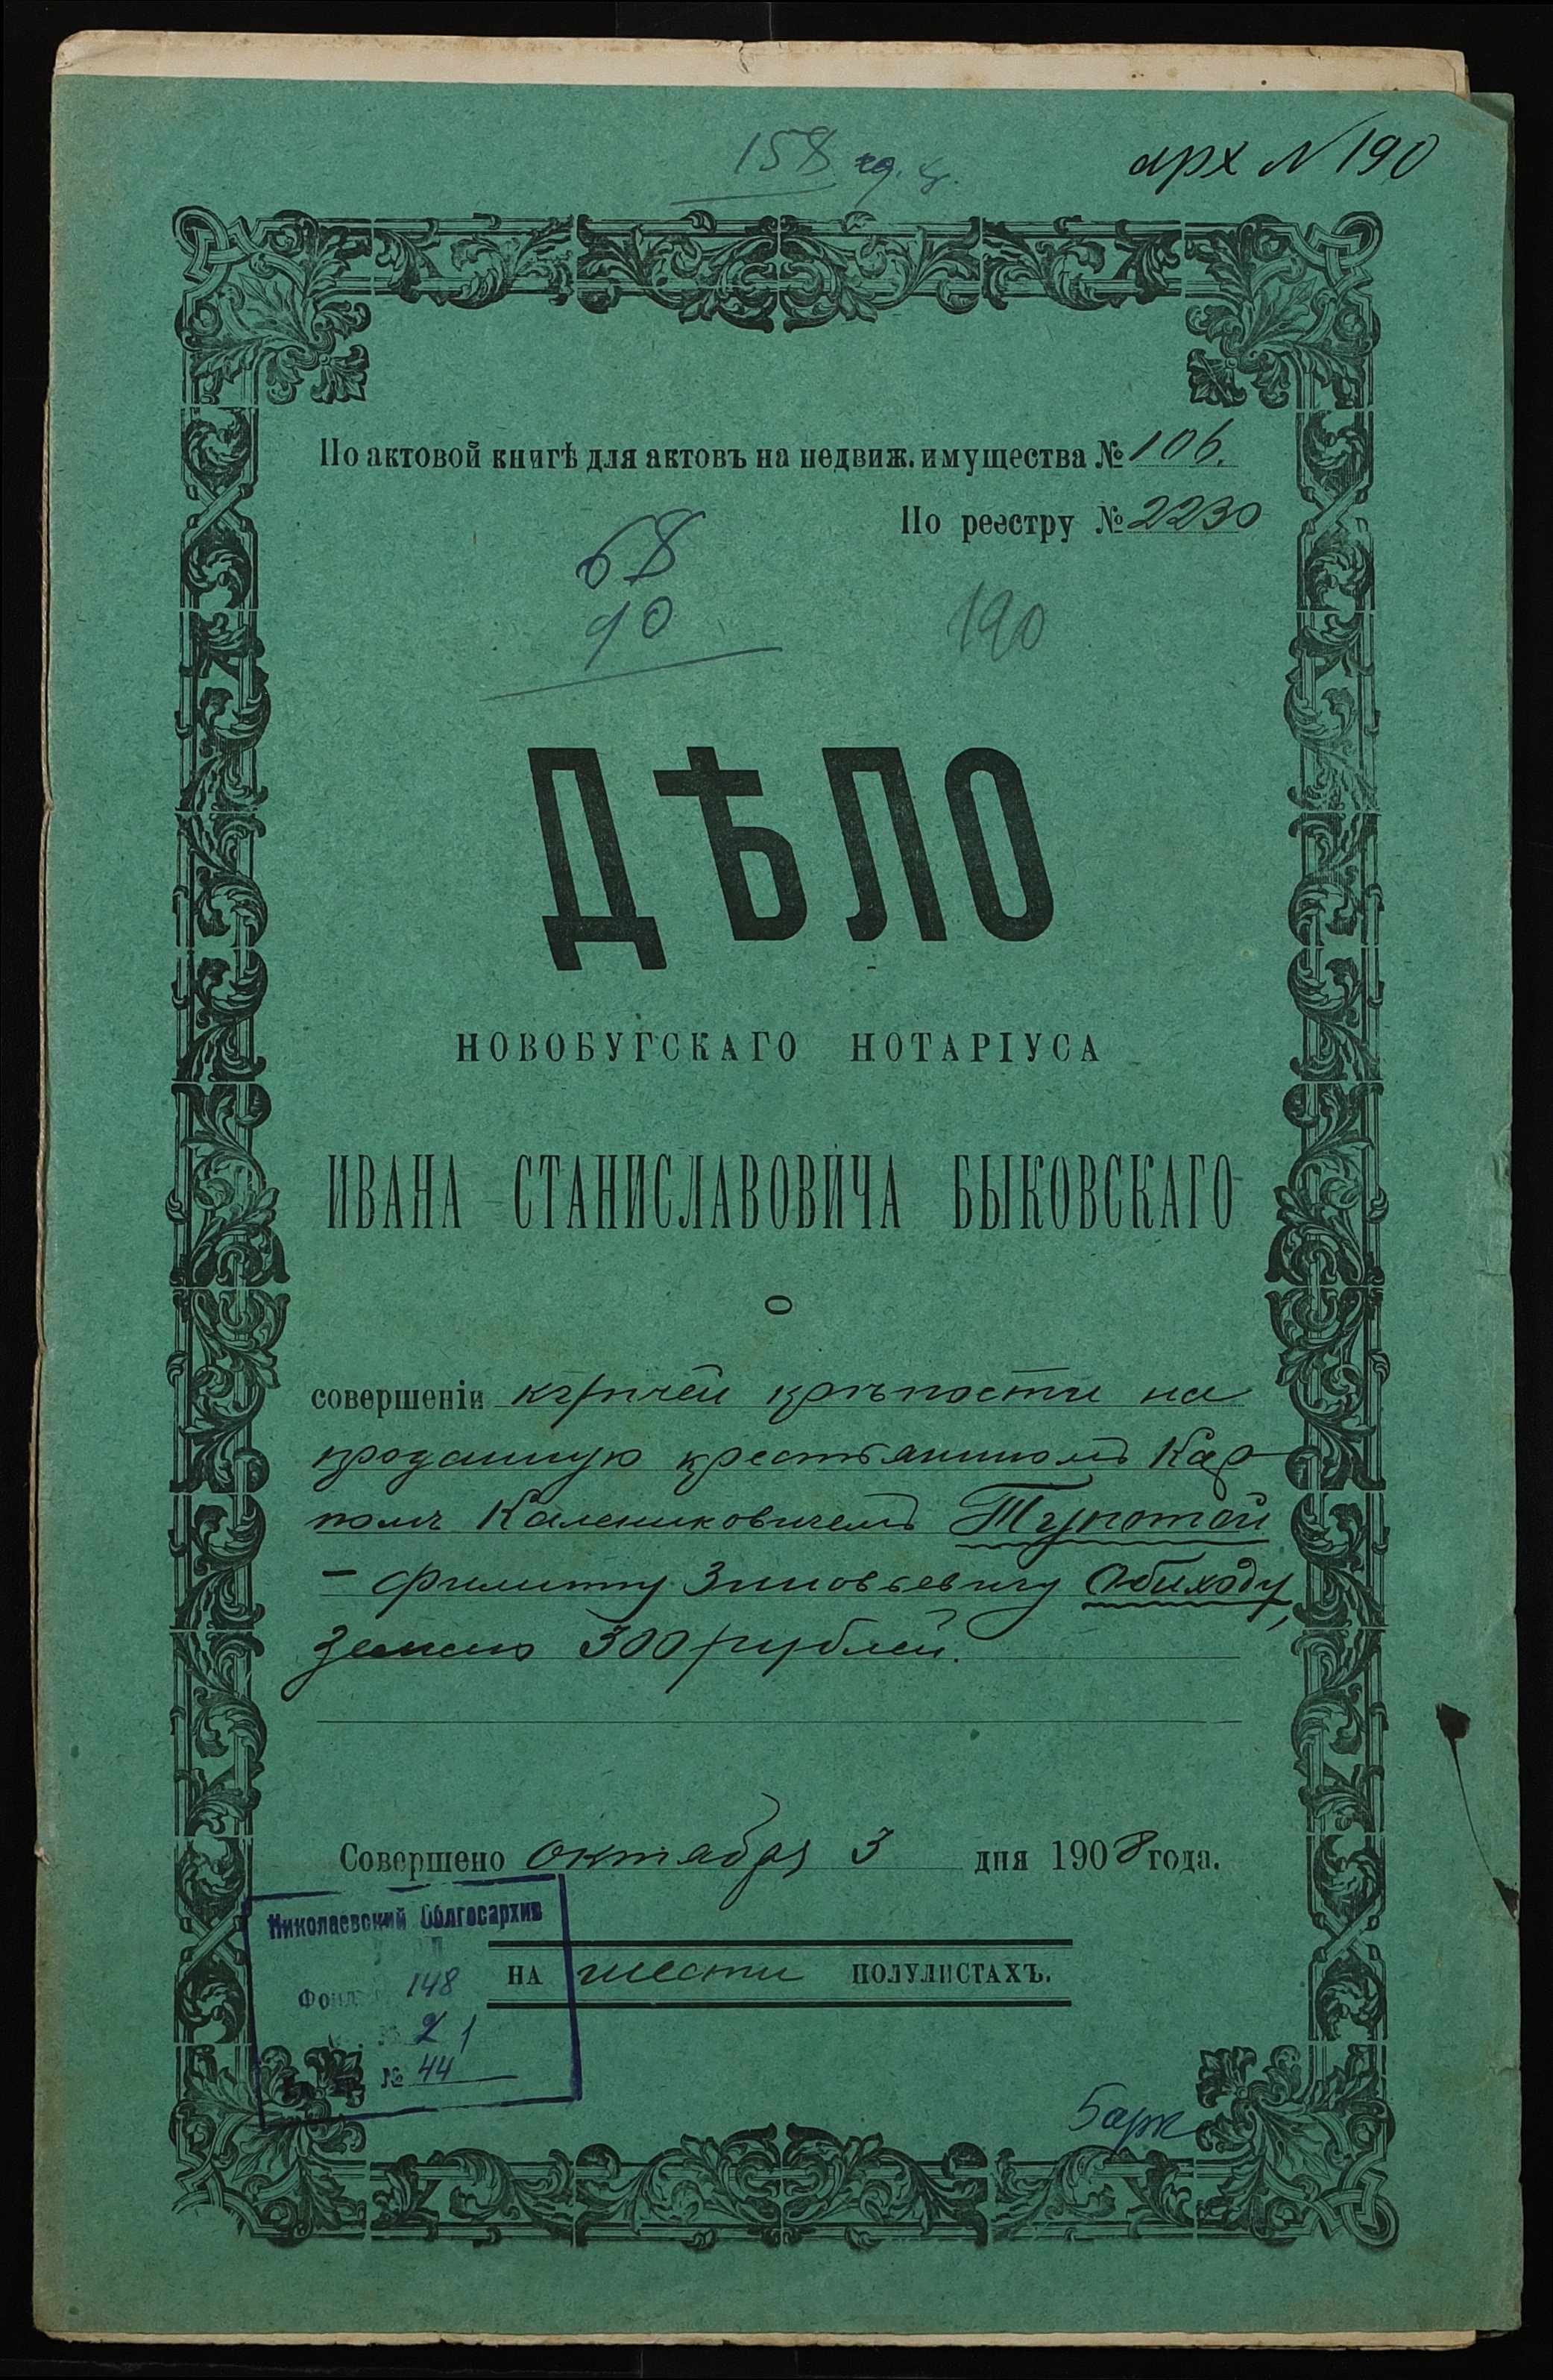 158
арх № 190
По актовой книгѣ для актовъ на недвиж. имущества № 106.
По реестру № 2230
68
90
190
ДѢЛО
НОВОБУГСКАГО НОТАРІУСА
ИВАНА СТАНИСЛАВОВИЧА БЫКОВСКАГО
О
совершеніи купчей крѣпости на
проданную крестьяниномъ Кар
помъ Калениковичемъ Тупотой
— Филиппу Зиновьевичу Обиходу,
землю 300 рублей.
Совершено октября 3 дня 1908 года.
Николаевский Облгосархив
Фонд 148
2 1
№ 44
НА шести ПОЛУЛИСТАХЪ.
5 арк